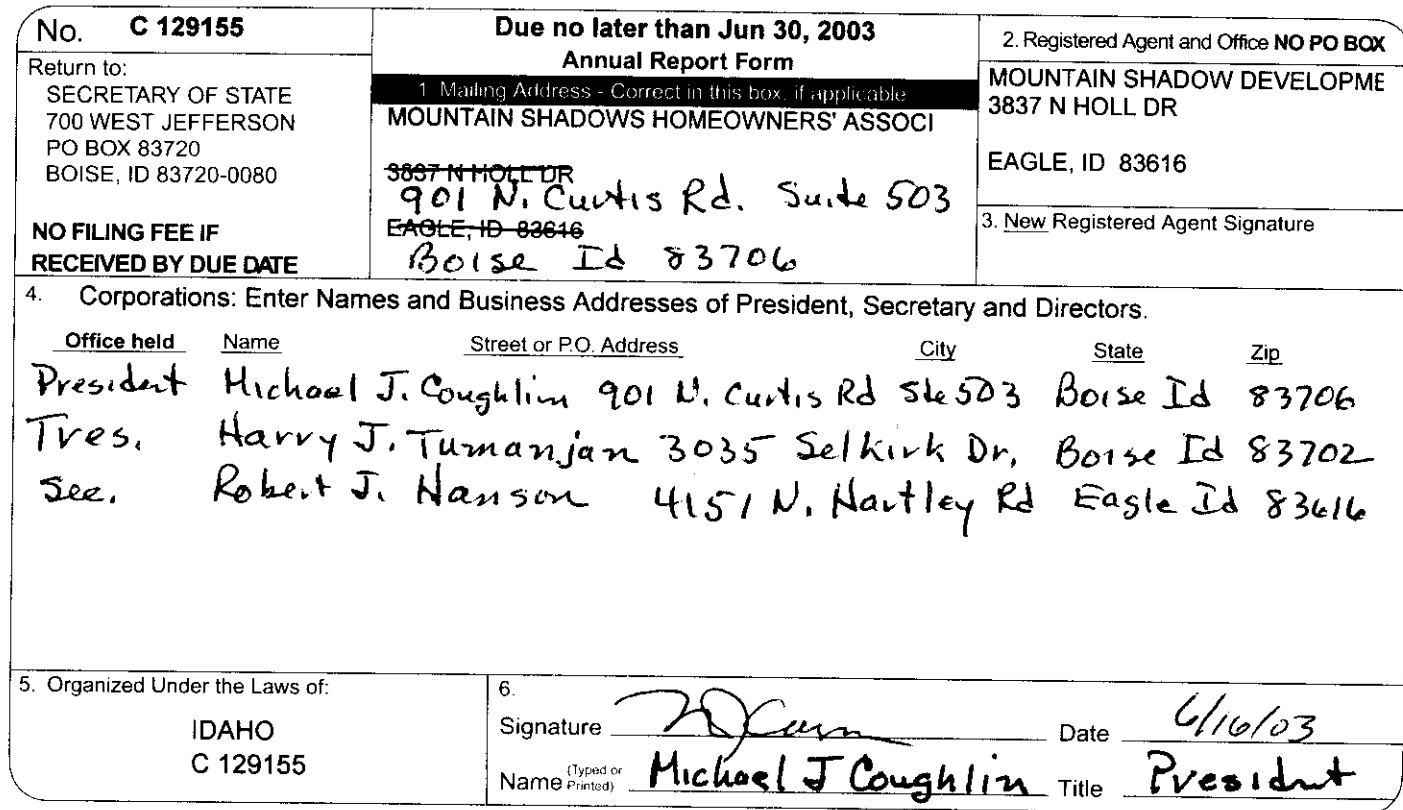 No. C 129155
Return to:
SECRETARY OF STATE
700 WEST JEFFERSON
PO BOX 83720
BOISE, ID 83720-0080
NO FILING FEE IF
RECEIVED BY DUE DATE
Due no later than Jun 30, 2003
Annual Report Form
1 Mailing Address - Correct in this box, if applicable
MOUNTAIN SHADOWS HOMEOWNERS' ASSOCI
3837 N HOLL DR
901 N. Curtis Rd. Suite 503
EAGLE, ID 83616
Boise Id 83706
2. Registered Agent and Office NO PO BOX
MOUNTAIN SHADOW DEVELOPME
3837 N HOLL DR
EAGLE, ID 83616
3. New Registered Agent Signature
4. Corporations: Enter Names and Business Addresses of President, Secretary and Directors.
Office held Name Street or P.O. Address City State Zip
President Michael J. Coughlin 901 N. Curtis Rd Ste 503 Boise Id 83706
Tres. Harry J. Tumanjan 3035 Selkirk Dr. Boise Id 83702
Sec. Robert J. Hanson 4151 N. Hartley Rd Eagle Id 83616
5. Organized Under the Laws of:
IDAHO
C 129155
6.
Signature Date 6/16/03
Name (Typed or Printed) Michael J Coughlin Title President